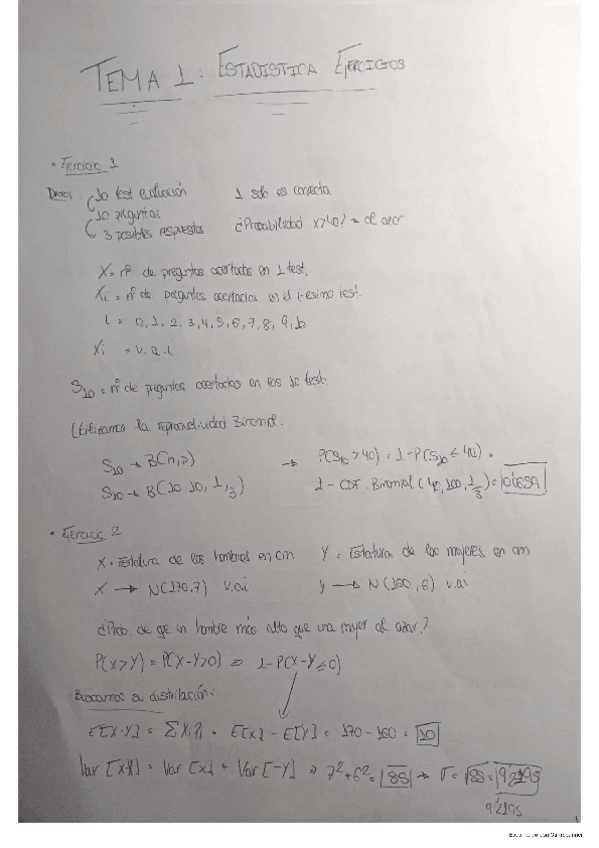 TEMA 1: ESTADISTICA EJERCICIOS
• Ejercicio 1
Datos: 10 test evaluación 1 solo es correcta
10 preguntas ¿Probabilidad x>40? = al azar
3 posibles respuestas
X = nº de preguntas acertadas en 1 test.
Xi = nº de preguntas acertadas en el i-esimo test.
i = 0, 1, 2, 3, 4, 5, 6, 7, 8, 9, 10
Xi = v.a.i
S10 = nº de preguntas acertadas en los 10 test.
Utilizamos la reproductividad Binomial.
S10 → B(n,p) → P(S10 > 40) = 1 - P(S10 ≤ 40) =
S10 → B(10·10, 1/3) 1 - CDF.Binomial (40, 100, 1/3) =
• Ejercicio 2
X = Estatura de los hombres en cm Y = Estatura de las mujeres en cm
X → N(170,7) v.a.i Y → N(160,6) v.a.i
¿Prob. de que un hombre más alto que una mujer al azar?
P(X>Y) = P(X-Y>0) ⇒ 1-P(X-Y≤0)
Buscamos su distribución:
E[X-Y] = = E[X] - E[Y] = 170 - 160 = 10
Var [X-Y] = Var [X] + Var [-Y] ⇒ 7²+6² = 85 → σ = √85 = 9'2195
9'2195